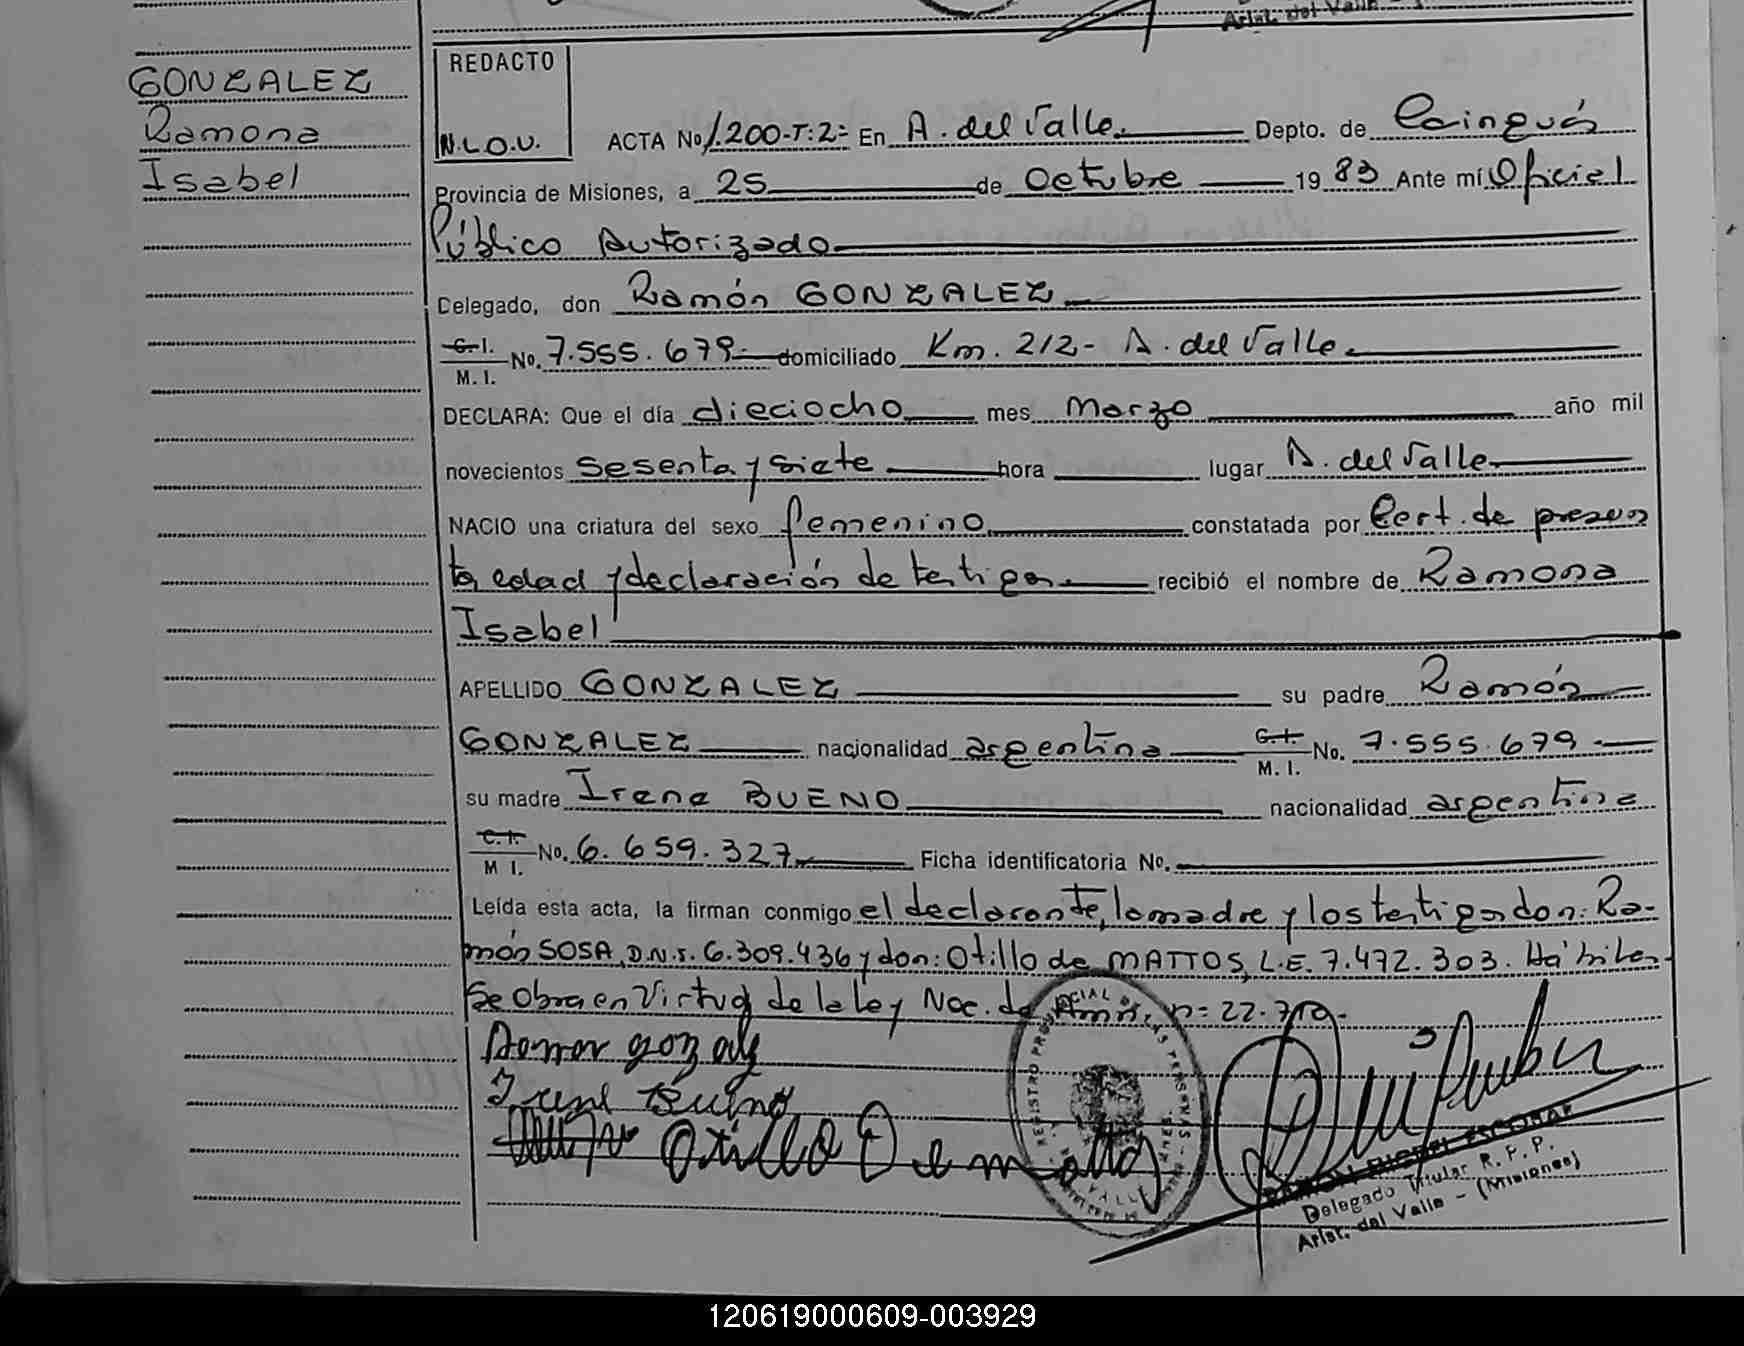 Arist. del Valle -
GONZALEZ
Ramona
Isabel
REDACTO
N.L.O.V.
ACTA No 1.200-T:2- En A. del Valle. Depto. de Cainguás
Provincia de Misiones, a 25 de Octubre 1983 Ante mí Oficial
Público Autorizado
Delegado, don Ramón GONZALEZ
C.I. M.I. No. 7.555.679- domiciliado Km. 212- A. del Valle.
DECLARA: Que el día dieciocho mes Marzo año mil
novecientos sesenta y siete hora lugar A. del Valle
NACIO una criatura del sexo femenino constatada por Cert. de presun
ta edad y declaración de testigos recibió el nombre de Ramona
Isabel
APELLIDO GONZALEZ su padre Ramón
GONZALEZ nacionalidad argentina C.I. M.I. No. 7.555.679
su madre Irene BUENO nacionalidad argentina
C.I. M I. No. 6.659.327 Ficha identificatoria No.
Leída esta acta, la firman conmigo el declarante, la madre y los testigos don: Ra-
món SOSA, D.N.I. 6.309.436 y don: Otillo de MATTOS, L.E. 7.472.303. Hábiles-
Se Obra en Virtud de la Ley Nac. de n= 22.
Irene Bueno
Otillo De mattos
REGISTRO DE LAS PERSONAS
VALLE
RAMON MIGUEL ESCOBAR
Delegado Titular R. P. P.
Arist. del Valle - (Misiones)
120619000609-003929